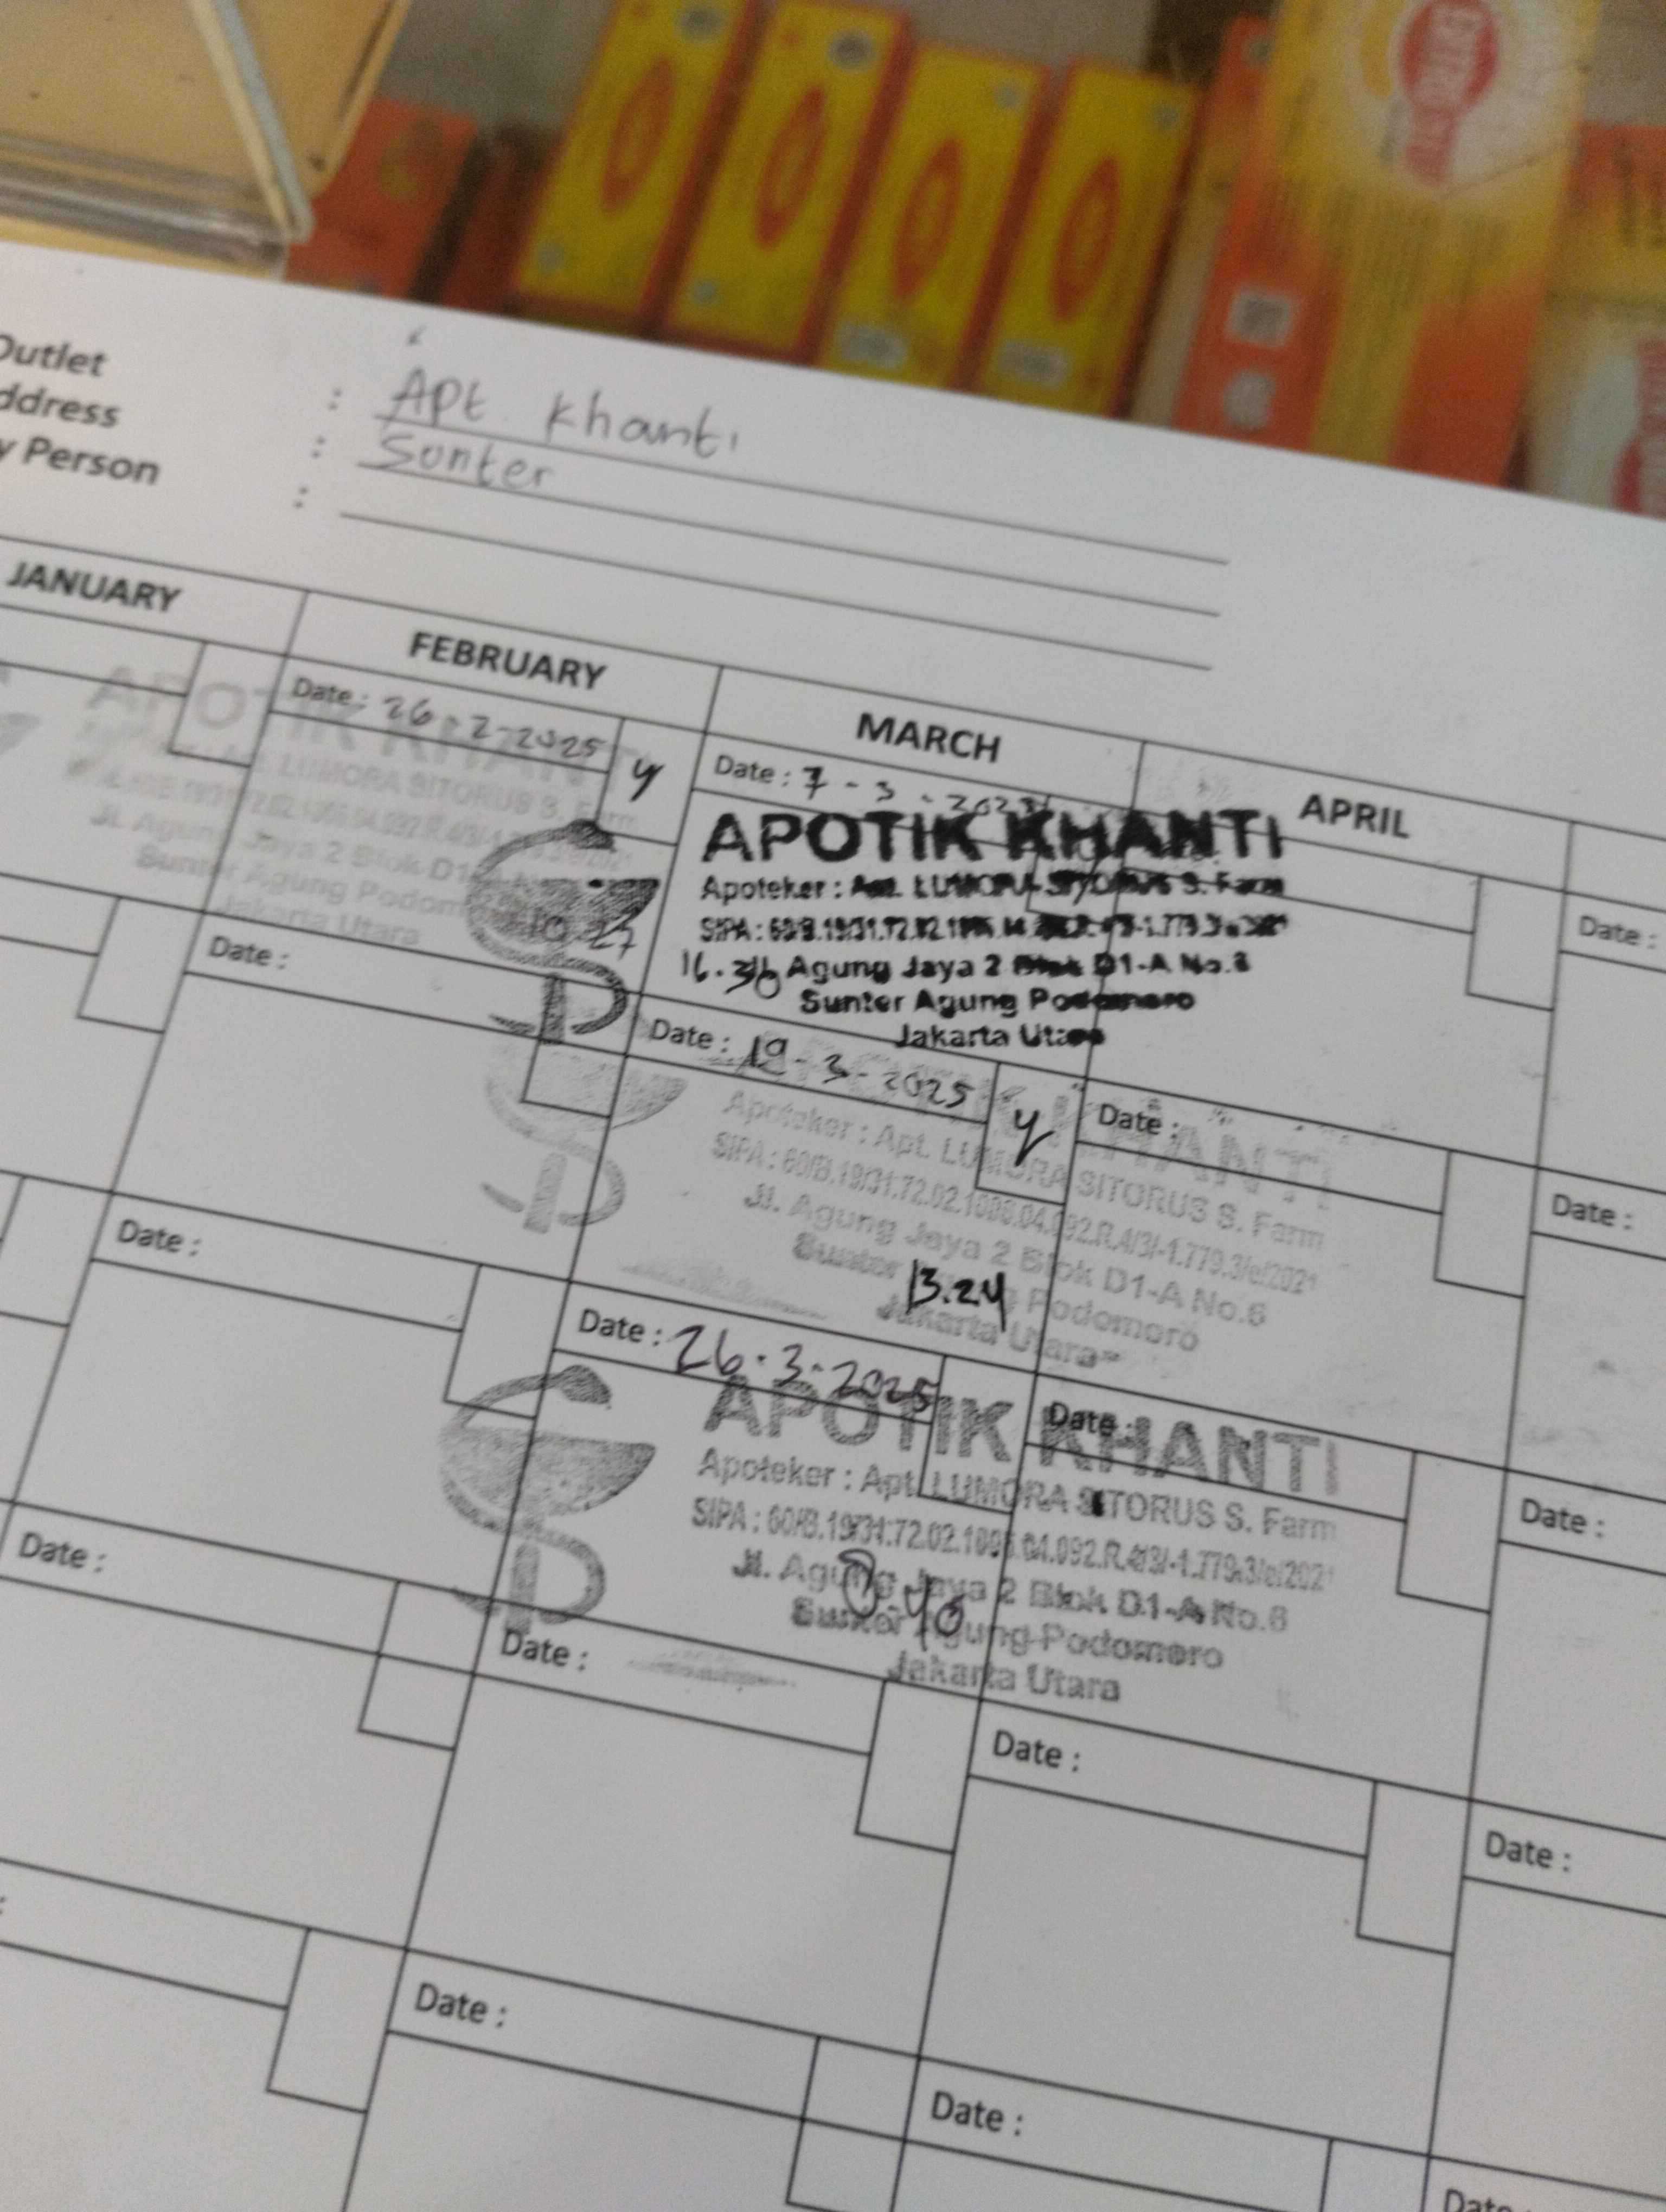 Outlet : Apt Khanti
ddress : Sunter
y Person :
JANUARY
FEBRUARY
MARCH
APRIL
Date : 26-2-2025 y
APOTIK KHANTI
LUMORA SITORUS S. Farm
Jl. Agung Jaya 2 Blok D1-A
Sunter Agung Podomoro
Jakarta Utara
10.27
Date : 7-3-2025
APOTIK KHANTI
Apoteker : Apt. LUMORA SITORUS S. Farm
SIPA :
16.30
Agung Jaya 2 Blok D1-A No.6
Sunter Agung Podomoro
Jakarta Utara
Date :
Date :
Date : 19-3-2025 y
KHANTI
Apoteker : Apt. LUMORA SITORUS S. Farm
SIPA : 60/B.19/31.72.02.1006.04.092.R.4/3/-1.779.3/e/2021
Jl. Agung Jaya 2 Blok D1-A No.6
Sunter Agung Podomoro
Jakarta Utara
13.24
Date :
Date :
Date :
Date : 26.3.2025
APOTIK KHANTI
Apoteker : Apt. LUMORA SITORUS S. Farm
SIPA : 60/B.19/31.72.02.1006.04.092.R.4/3/-1.779.3/e/2021
Jl. Agung Jaya 2 Blok D1-A No.6
Sunter Agung Podomoro
Jakarta Utara
Date :
Date :
Date :
Date :
Date :
Date :
Date :
Date :
Date